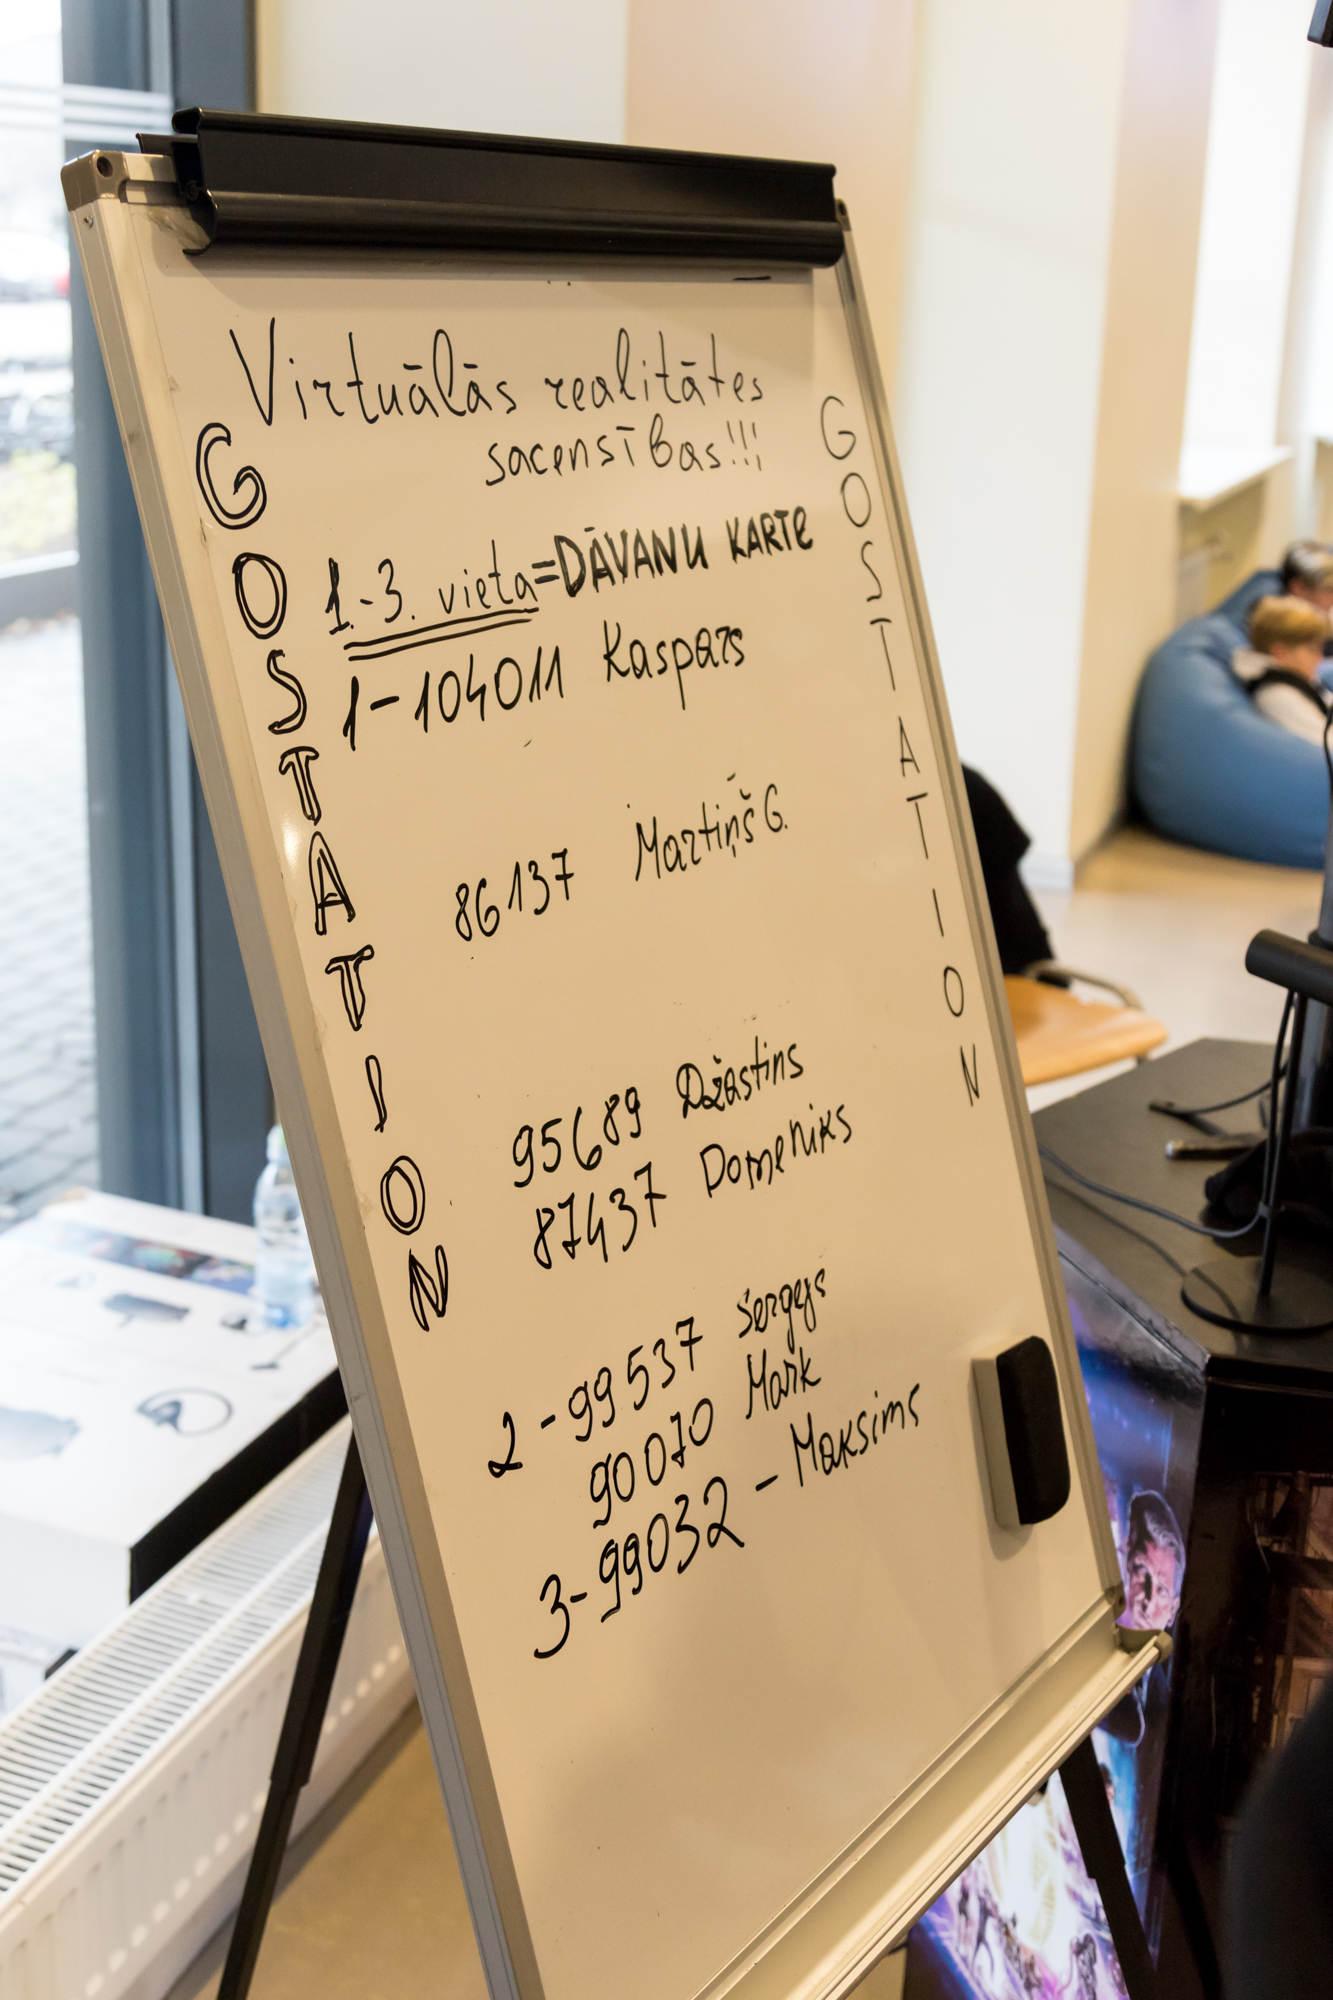 Virtuālās realitātes
sacensības!!!
GOSTATION
GOSTATION
1.-3. vieta=DĀVANU KARTE
1-104011 Kaspars
86137 Martiņš G.
95689 Džastins
87437 Domeniks
2-99537 Sergejs
90070 Mark
3-99032 - Maksims